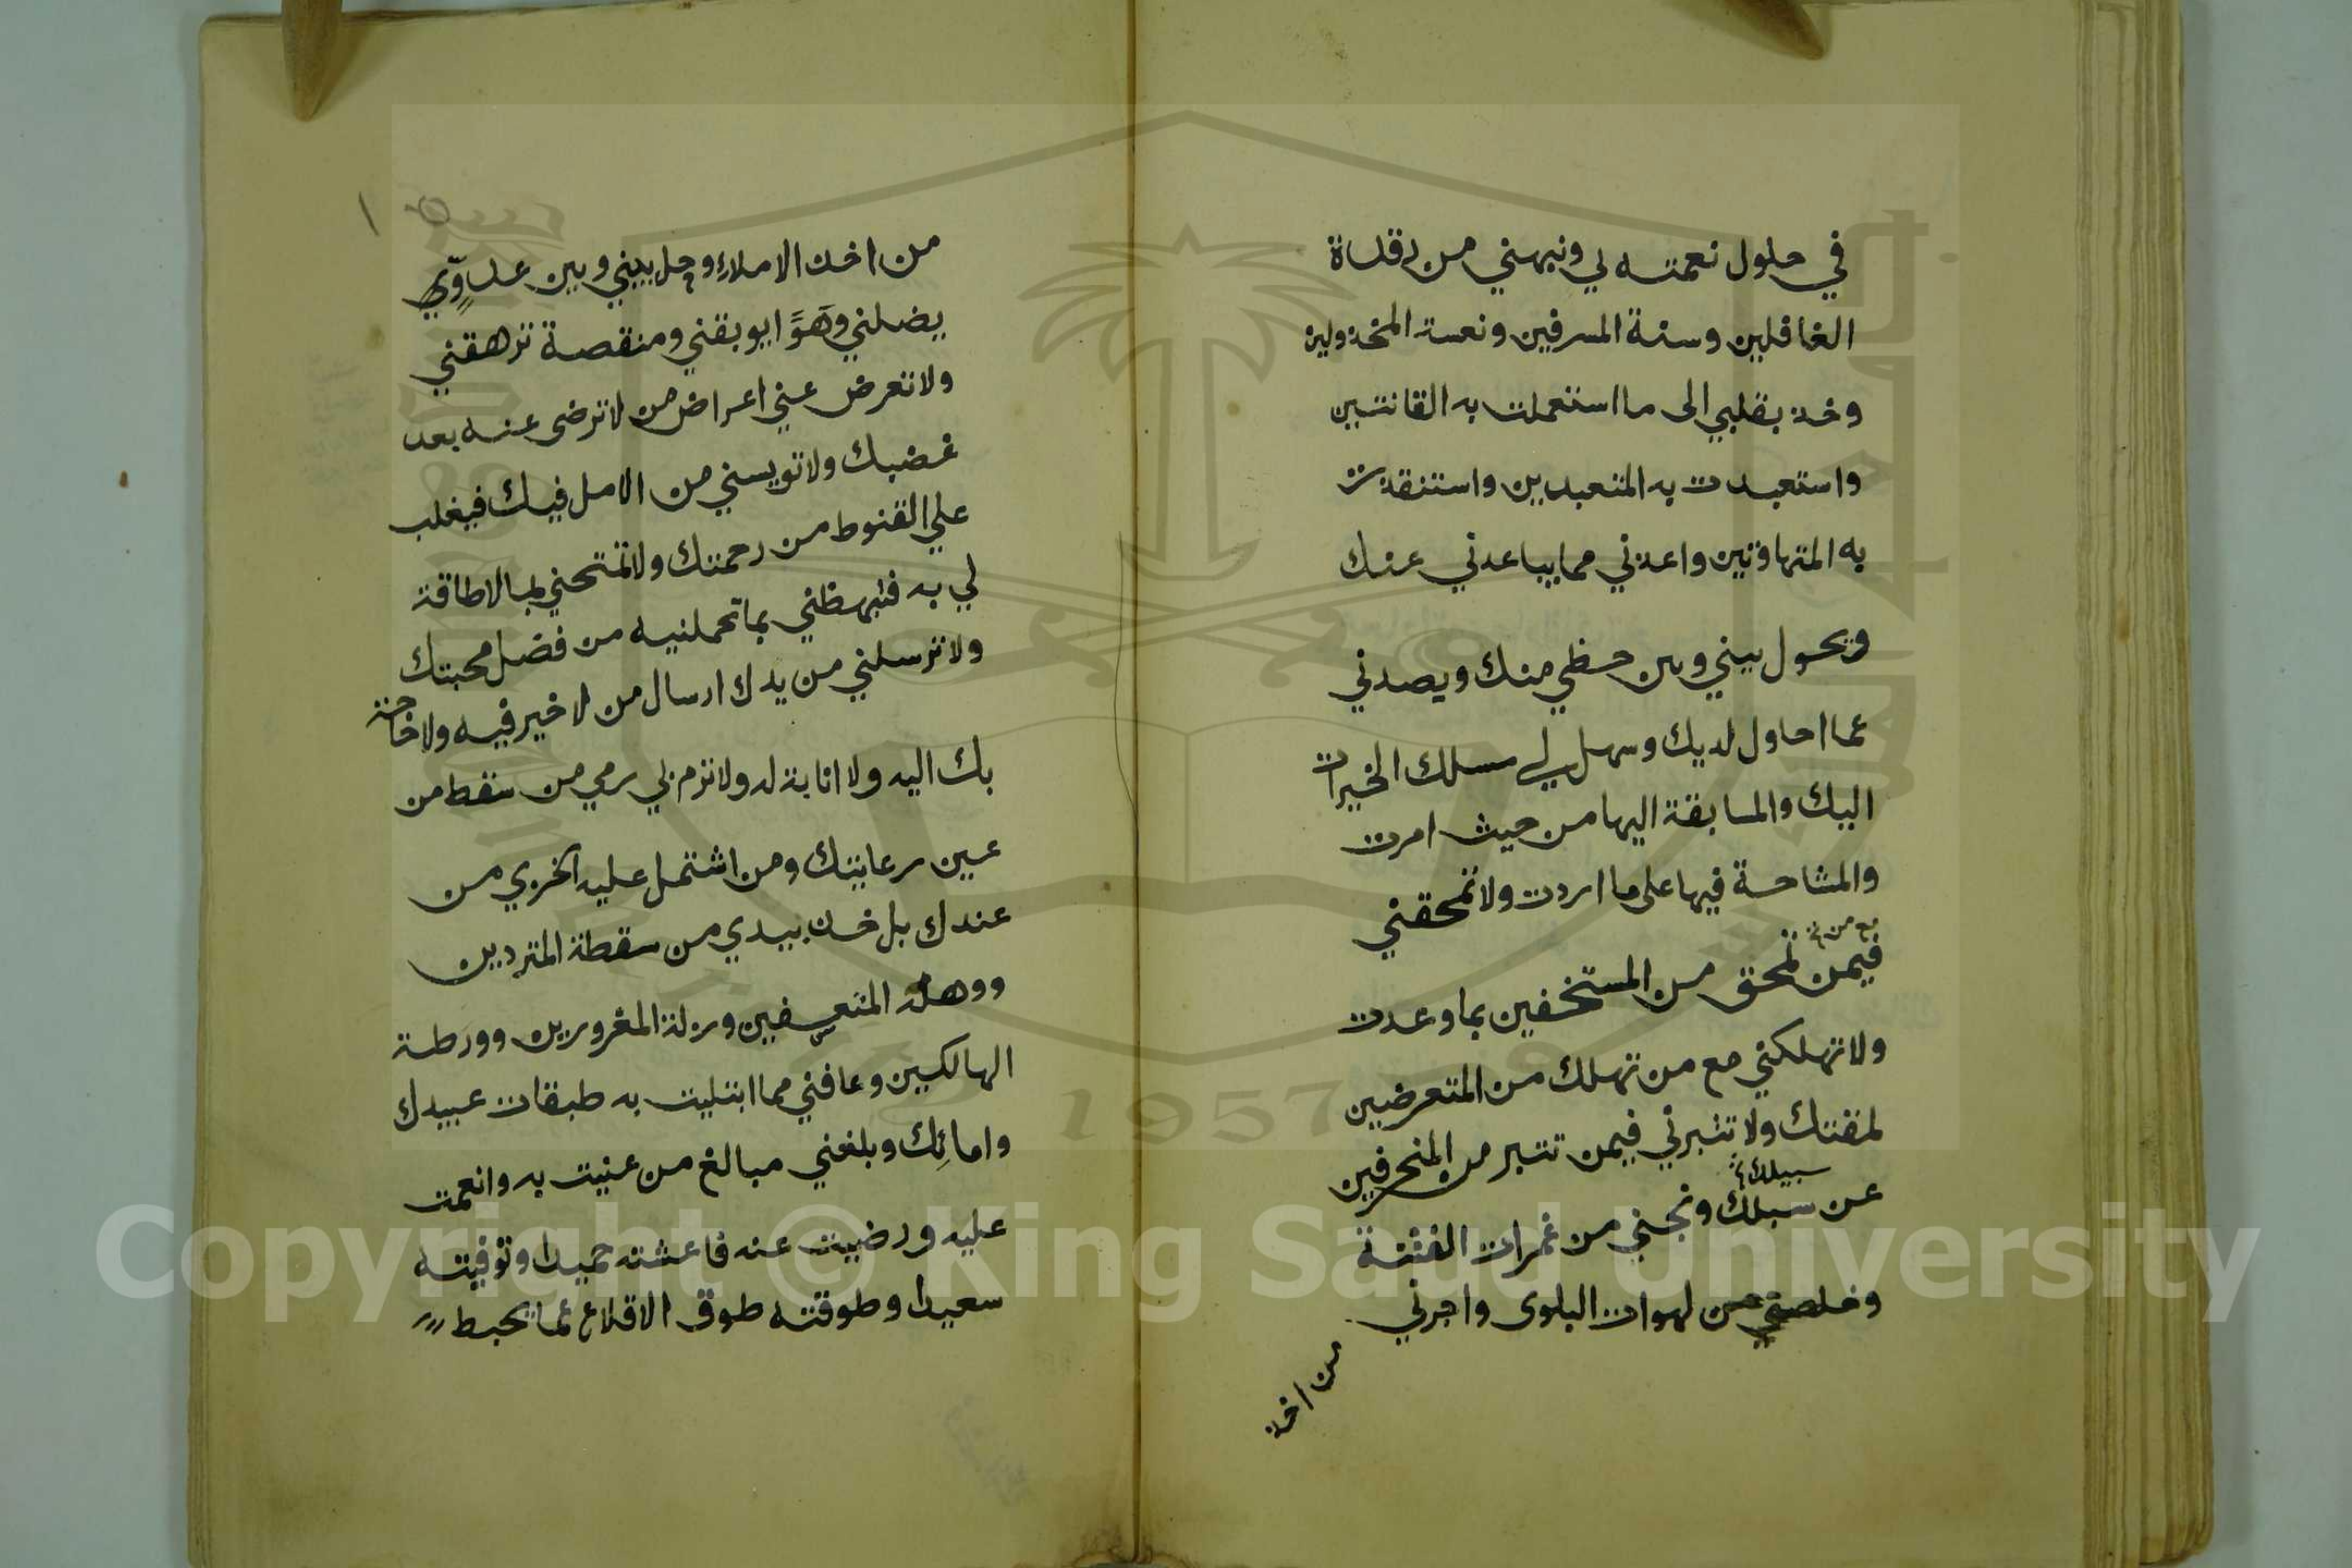 في حلول نعمته لي ونبهني من رقدة
الغافلين وسنة المسرفين ونعسة المخذولين
وخذ بقلبي الى ما استعملت به القانتين
واستعبدت به المتعبدين واستنقذت
به المتهاونين واعذني مما يباعدني عنك
ويحول بيني وبين حظي منك ويصدني
عما احاول لديك وسهل لي مسلك الخيرات
اليك والمسابقة اليها من حيث امرت
والمشاحة فيها على ما اردت ولا تمحقني
مع من
فيمن تمحق من المستخفين بما وعدت
ولا تهلكني مع من تهلك من المتعرضين
لمقتك ولا تتبرني فيمن تتبر من المنحرفين
سبيلك
عن سبلك ونجني من غمرات الفتنة
وخلصني من لهوات البلوى واجرني
من اخذ
من اخذ الاملاء وحل بيني وبين عدوٍّ
يضلني وهوًا يوبقني ومنقصة ترهقني
ولا تعرض عني اعراض من لا ترضى عنه بعد
غضبك ولا تويسني من الامل فيك فيغلب
علي القنوط من رحمتك ولا تمتحني بما لا طاقة
لي به فتبهظني بما تحملنيه من فضل محبتك
ولا ترسلني من يدك ارسال من لا خير فيه ولا حاجة
بك اليه ولا انابة له ولا ترم بي رمي من سقط من
عين رعايتك ومن اشتمل عليه الخزي من
عندك بل خذ بيدي من سقطة المتردين
ووهلة المتعسفين وزلة المغرورين وورطة
الهالكين وعافني مما ابتليت به طبقات عبيدك
وامائك وبلغني مبالغ من عنيت به وانعمت
عليه ورضيت عنه فاعشته حميدا وتوفيته
سعيدا وطوقته طوق الاقلاع عما يحبط
Copyright © King Saud University
1957